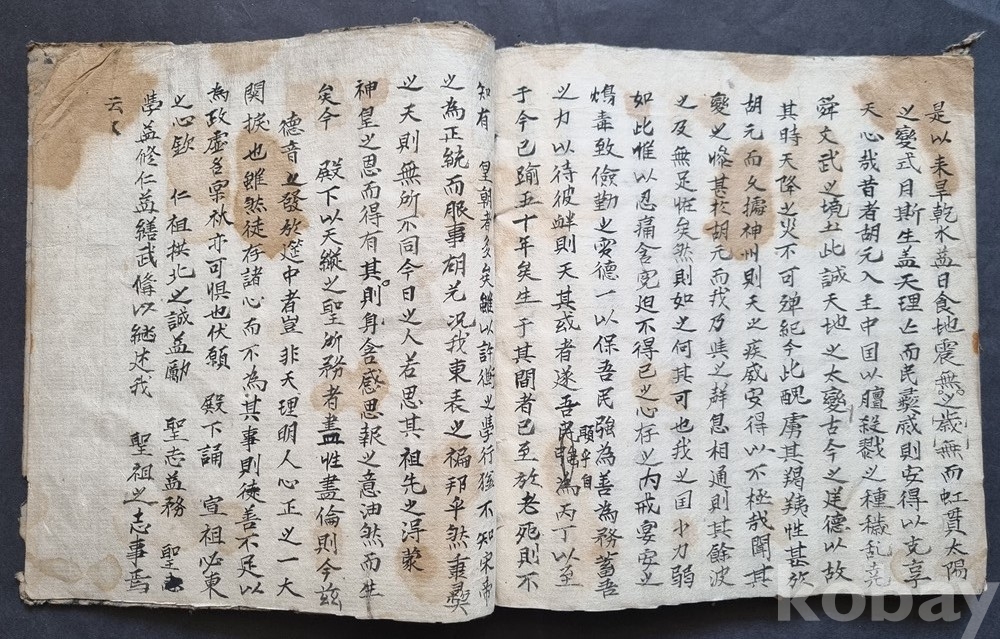 是以来旱乾水益日食地震無之歲無而虹貫太陽
之變式月斯生盖天理亡而民彛滅則安得以克享
天心哉昔者胡元入主中国以膻殺戮之種穢乱堯
舜文武之境土此誠天地之大變古今之逆德以故
其時天降之災不可殫紀今此醜虜其羯羠性甚於
胡元而久據神州則天之疾威安得以不極哉聞其
變之慘甚於胡元而我乃與之群息相通則其餘波
之及無足怪矣然則如之何其可也我之国小力弱
如此惟以忍痛含寃迫不得已之心存之内戒宴安之
鴆毒致儉勤之實德一以保吾民強為善為務蓄吾
之力以待彼衅則天其或者遂吾 為丙丁以至
願 乎自
于今已踰五十年矣生于其間者已至於老死則不
知有 皇朝者多矣雖以許衡之學行後不知宋帝
之為正統而服事胡元况我東表之褊邦乎然秉彛
之天則無所不同今日之人若思其祖先之得蒙
神皇之恩而得有其則身含感思報之意油然而生
矣今 殿下以天縱之聖所務者盡性盡倫則今玆
德音之發於筵中者豈非天理明人心正之一大
関捩也雖然徒存諸心而不為其事則徒善不足以
為政虚名 亦可惧也伏願 殿下誦 宣祖必東
之心欽 仁祖拱北之誠益勵 聖志益務 聖
學益修仁益繕武俻以継述我 聖祖之志事焉
云〻
kobay